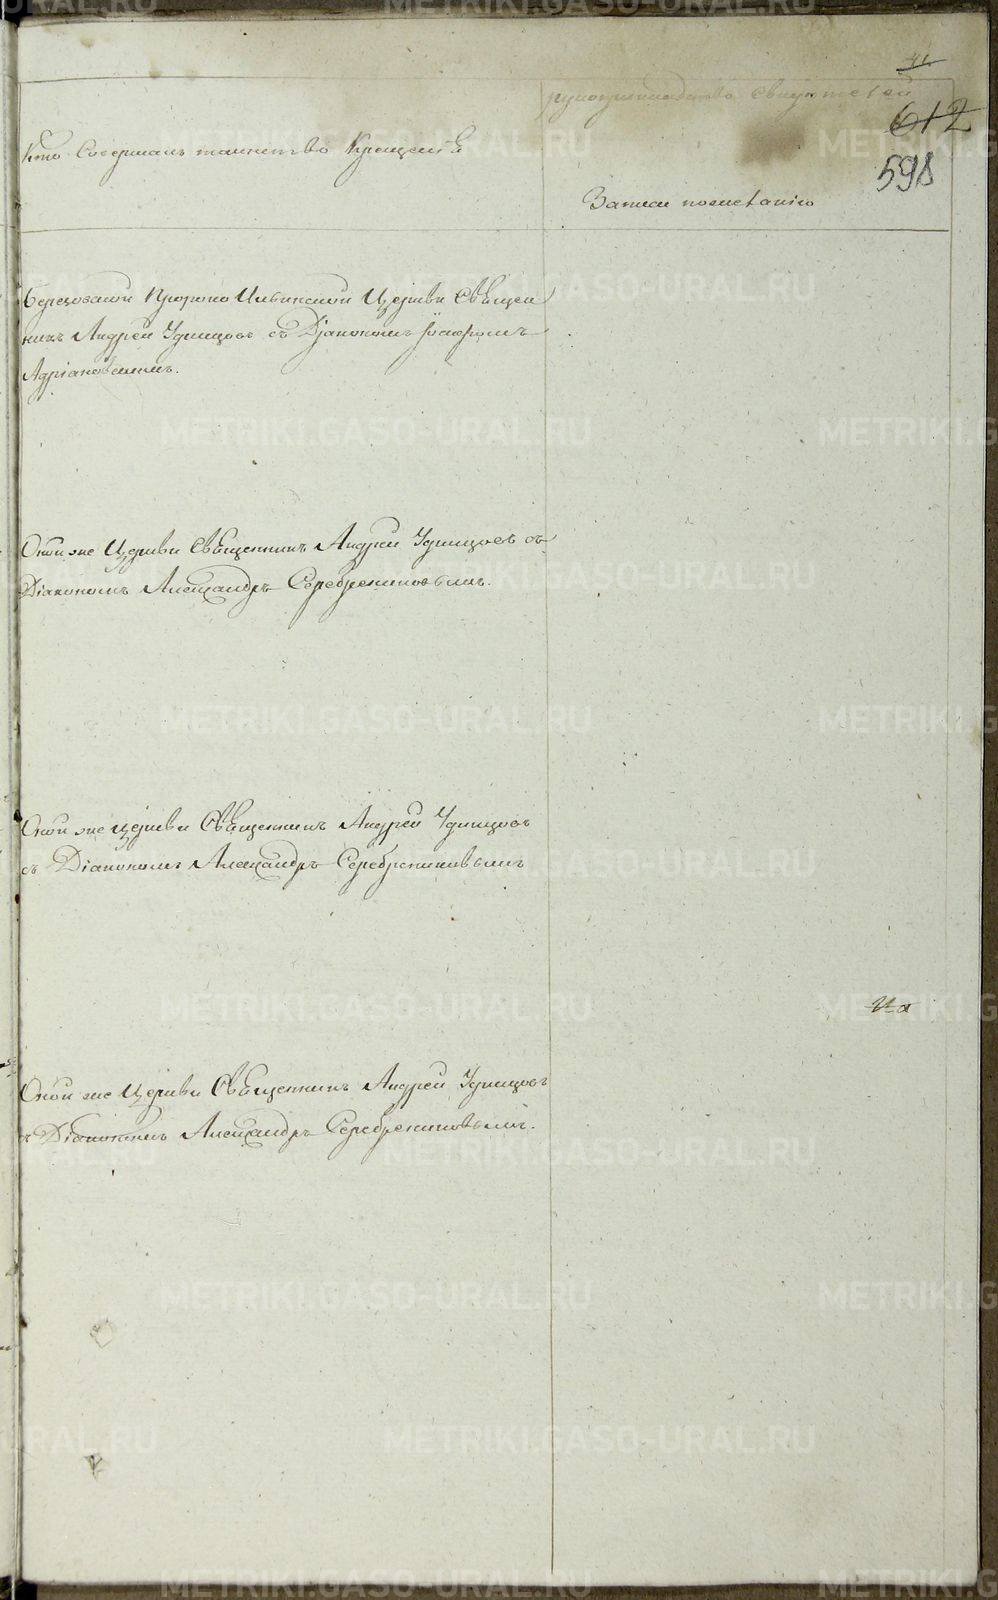 41.
612
598
Кто Совершалъ таинство Крещенія
рукоприкладство Свидѣтелей
Записи по желанію
Березовской Пророко Ильинской Церкви Священ
никъ Андрей Удинцовъ съ Діакономъ
Адріановскимъ.
Оной же Церкви Священникъ Андрей Удинцовъ съ
Діакономъ Александръ Серебрениковымъ.
Оной же Церкви Священникъ Андрей Удинцовъ
съ Діакономъ Александръ Серебрениковымъ
Оной же Церкви Священникъ Андрей Удинцовъ
съ Діакономъ Александръ Серебрениковымъ.
METRIKI.GASO-URAL.RU